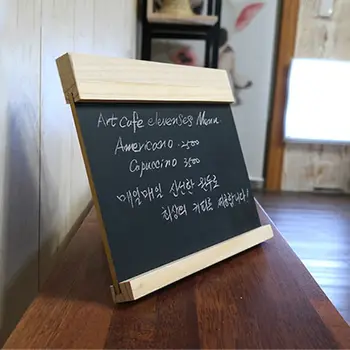 Art Cafe elevenses Menu
Americano . 2500
Cappuccino 3500
매일매일 신선한 원두로
최상의 커피를 제공합니다!